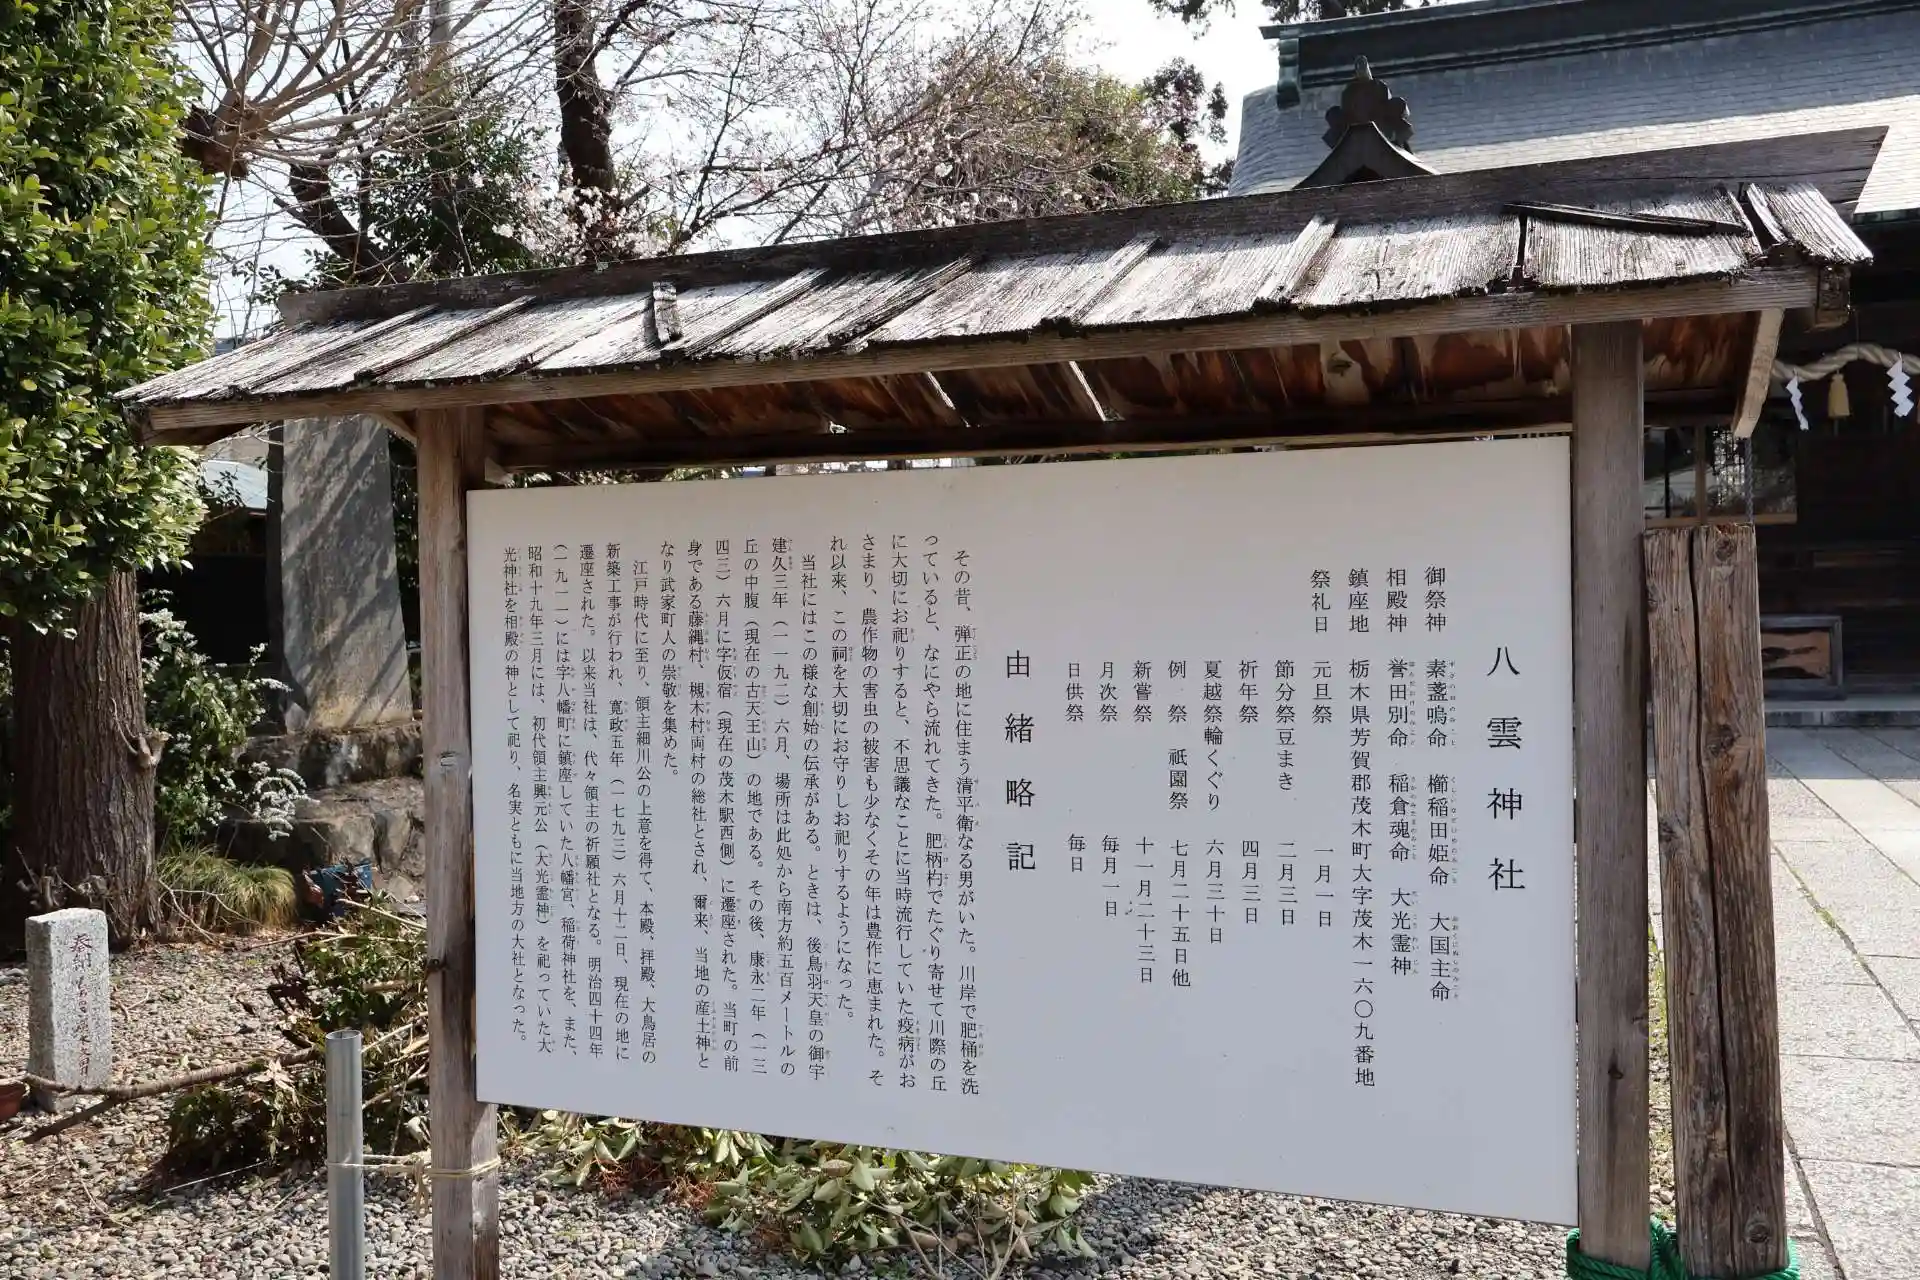 八雲神社
御祭神 素盞嗚命 櫛稲田姫命 大国主命
相殿神 誉田別命 稲倉魂命 大光霊神
鎮座地 栃木県芳賀郡茂木町大字茂木一六〇九番地
祭礼日 元旦祭 一月一日
節分祭豆まき 二月三日
祈年祭 四月三日
夏越祭輪くぐり 六月三十日
例 祭 祇園祭 七月二十五日他
新嘗祭 十一月二十三日
月次祭 毎月一日
日供祭 毎日
由緒略記
その昔、弾正の地に住まう清平衛なる男がいた。川岸で肥桶を洗
っていると、なにやら流れてきた。肥柄杓でたぐり寄せて川際の丘
に大切にお祀りすると、不思議なことに当時流行していた疫病がお
さまり、農作物の害虫の被害も少なくその年は豊作に恵まれた。そ
れ以来、この祠を大切にお守りしお祀りするようになった。
当社にはこの様な創始の伝承がある。ときは、後鳥羽天皇の御宇
建久三年（一一九二）六月、場所は此処から南方約五百メートルの
丘の中腹（現在の古天王山）の地である。その後、康永二年（一三
四三）六月に字仮宿（現在の茂木駅西側）に遷座された。当町の前
身である藤縄村、槻木村両村の総社とされ、爾来、当地の産土神と
なり武家町人の崇敬を集めた。
江戸時代に至り、領主細川公の上意を得て、本殿、拝殿、大鳥居の
新築工事が行われ、寛政五年（一七九三）六月十二日、現在の地に
遷座された。以来当社は、代々領主の祈願社となる。明治四十四年
（一九一一）には字八幡町に鎮座していた八幡宮、稲荷神社を、また、
昭和十九年三月には、初代領主興元公（大光霊神）を祀っていた大
光神社を相殿の神として祀り、名実ともに当地方の大社となった。
奉納